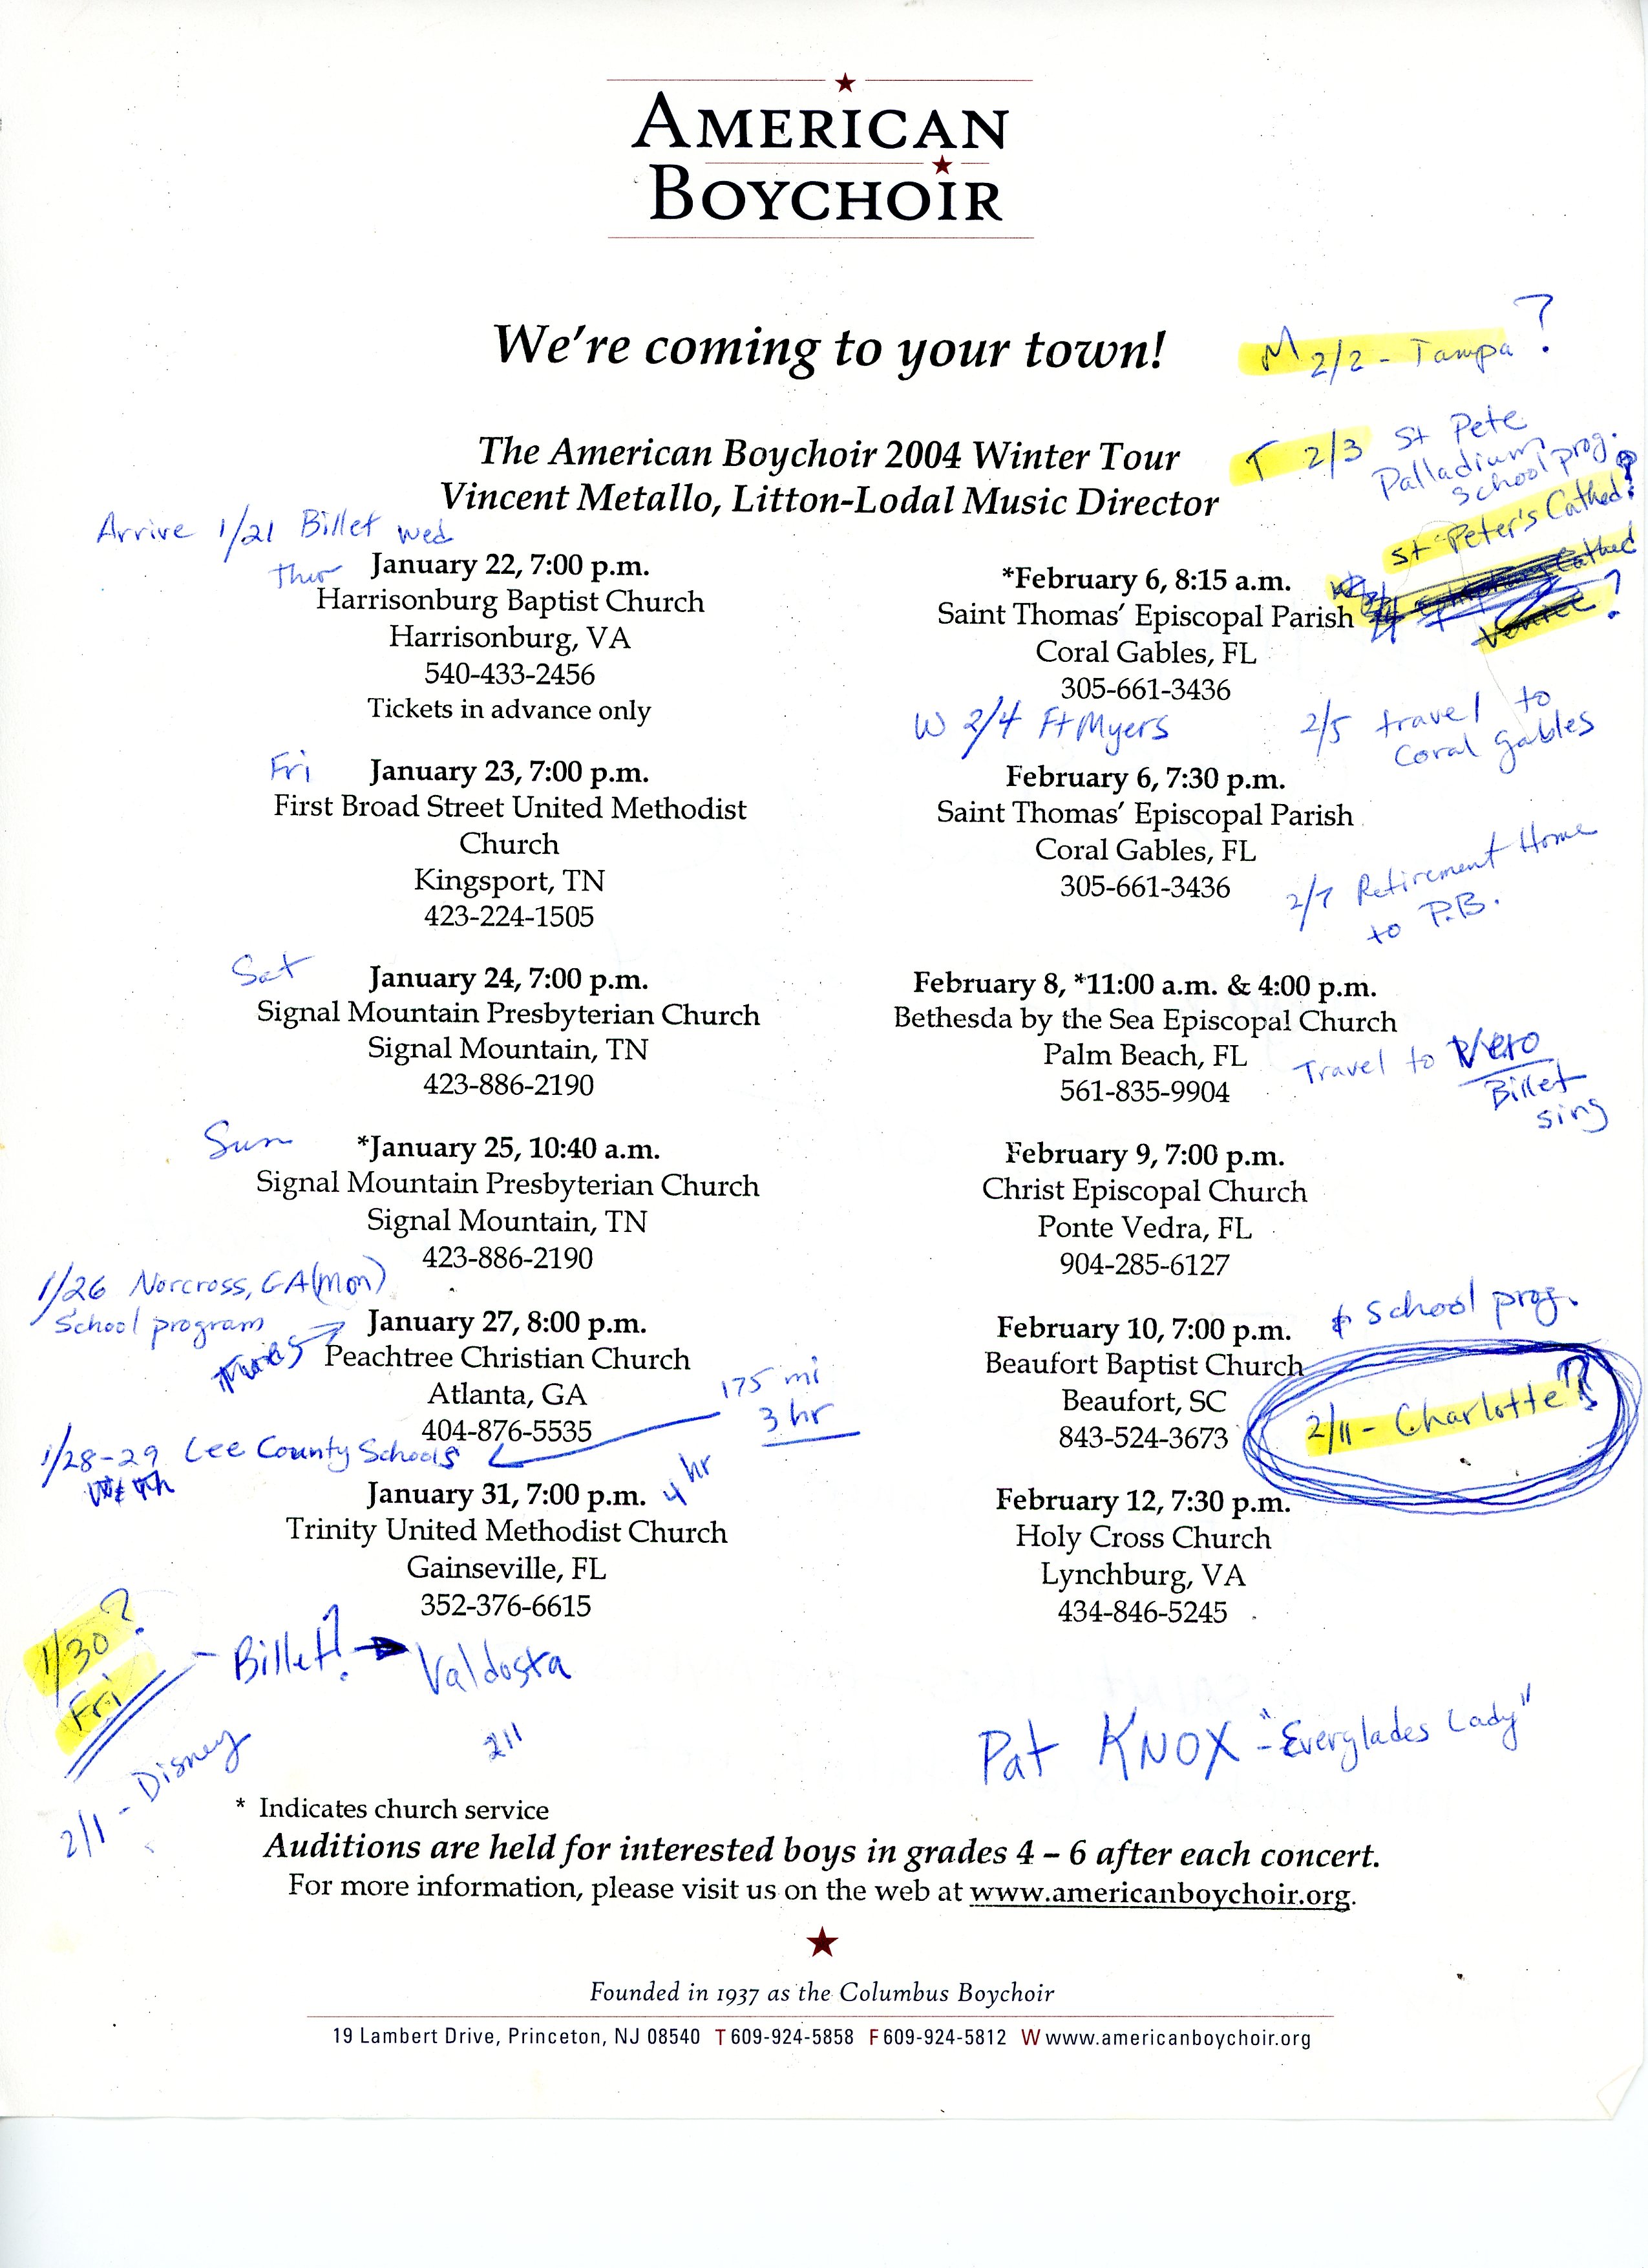 AMERICAN
BOYCHOIR
We're coming to your town!
M 2/2 - Tampa?
The American Boychoir 2004 Winter Tour
Vincent Metallo, Litton-Lodal Music Director
T 2/3 St Pete
Palladium
School prog.
St Peter's Cathed?
Venice?
Arrive 1/21 Billet Wed
Thur January 22, 7:00 p.m.
Harrisonburg Baptist Church
Harrisonburg, VA
540-433-2456
Tickets in advance only
Fri January 23, 7:00 p.m.
First Broad Street United Methodist
Church
Kingsport, TN
423-224-1505
Sat January 24, 7:00 p.m.
Signal Mountain Presbyterian Church
Signal Mountain, TN
423-886-2190
Sun *January 25, 10:40 a.m.
Signal Mountain Presbyterian Church
Signal Mountain, TN
423-886-2190
1/26 Norcross, GA (Mon)
School program
January 27, 8:00 p.m.
Peachtree Christian Church
Atlanta, GA
404-876-5535
175 mi
3 hr
1/28-29 Lee County Schools
January 31, 7:00 p.m. 4 hr
Trinity United Methodist Church
Gainseville, FL
352-376-6615
1/30?
Fri
- Billet? Valdosta
2/1 - Disney
211
*February 6, 8:15 a.m.
Saint Thomas' Episcopal Parish
Coral Gables, FL
305-661-3436
W 2/4 Ft Myers
2/5 travel to
Coral Gables
February 6, 7:30 p.m.
Saint Thomas' Episcopal Parish
Coral Gables, FL
305-661-3436
2/7 Retirement Home
to P.B.
February 8, *11:00 a.m. & 4:00 p.m.
Bethesda by the Sea Episcopal Church
Palm Beach, FL
561-835-9904
Travel to Vero
Billet
sing
February 9, 7:00 p.m.
Christ Episcopal Church
Ponte Vedra, FL
904-285-6127
February 10, 7:00 p.m. & School prog.
Beaufort Baptist Church
Beaufort, SC
843-524-3673
2/11 - Charlotte?
February 12, 7:30 p.m.
Holy Cross Church
Lynchburg, VA
434-846-5245
Pat KNOX - "Everglades Lady"
* Indicates church service
Auditions are held for interested boys in grades 4 – 6 after each concert.
For more information, please visit us on the web at www.americanboychoir.org.
Founded in 1937 as the Columbus Boychoir
19 Lambert Drive, Princeton, NJ 08540 T 609-924-5858 F 609-924-5812 W www.americanboychoir.org